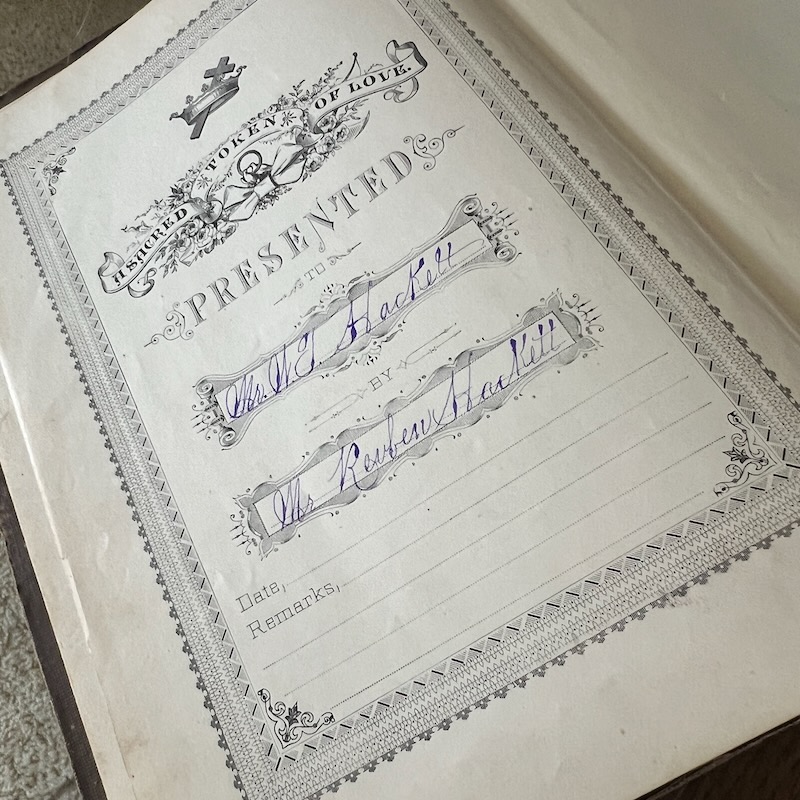 A SACRED TOKEN OF LOVE.
PRESENTED
TO
Mr. W. T. Hackett
BY
Mr Reuben Hackett
Date,
Remarks,